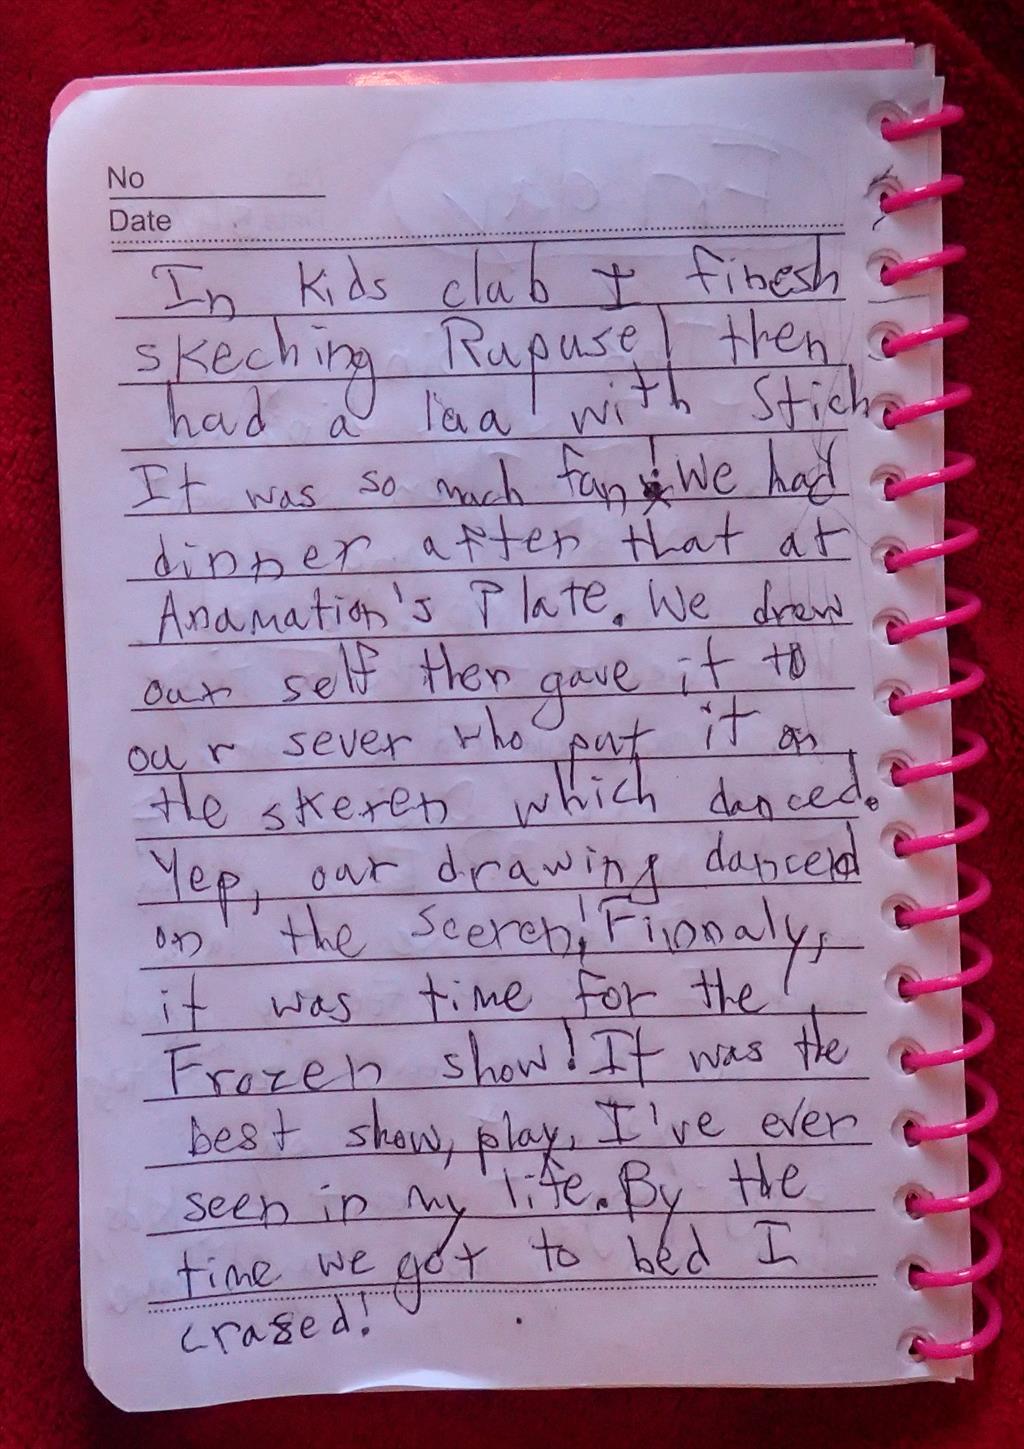 No
Date
In kids clab I finesh
skeching Rapusel then
had a laa with Stich
It was so mach fan! We had
dinner after that at
Anamation's Plate. We drew
our self then gave it to
our sever who pat it on
the skeren which danced.
Yep, our drawing danced
on the sceren! Fionaly,
it was time for the
Frozen show! It was the
best show, play, I've ever
seen in my life. By the
time we got to bed I
crased!